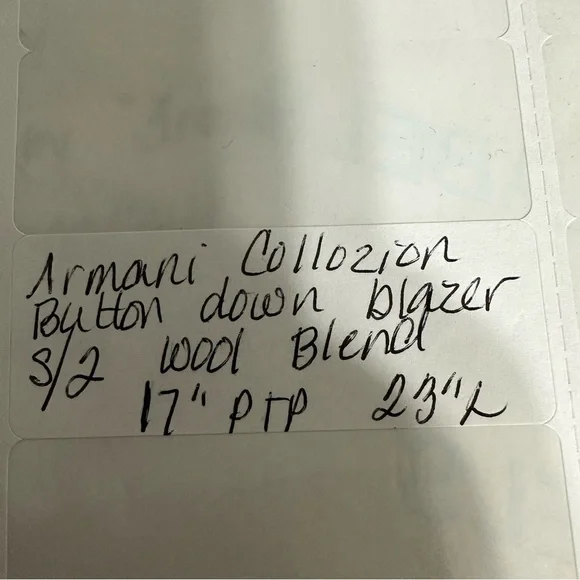 Armani Collozion
Button down blazer
S/2 wool Blend
17" PTP 23"L